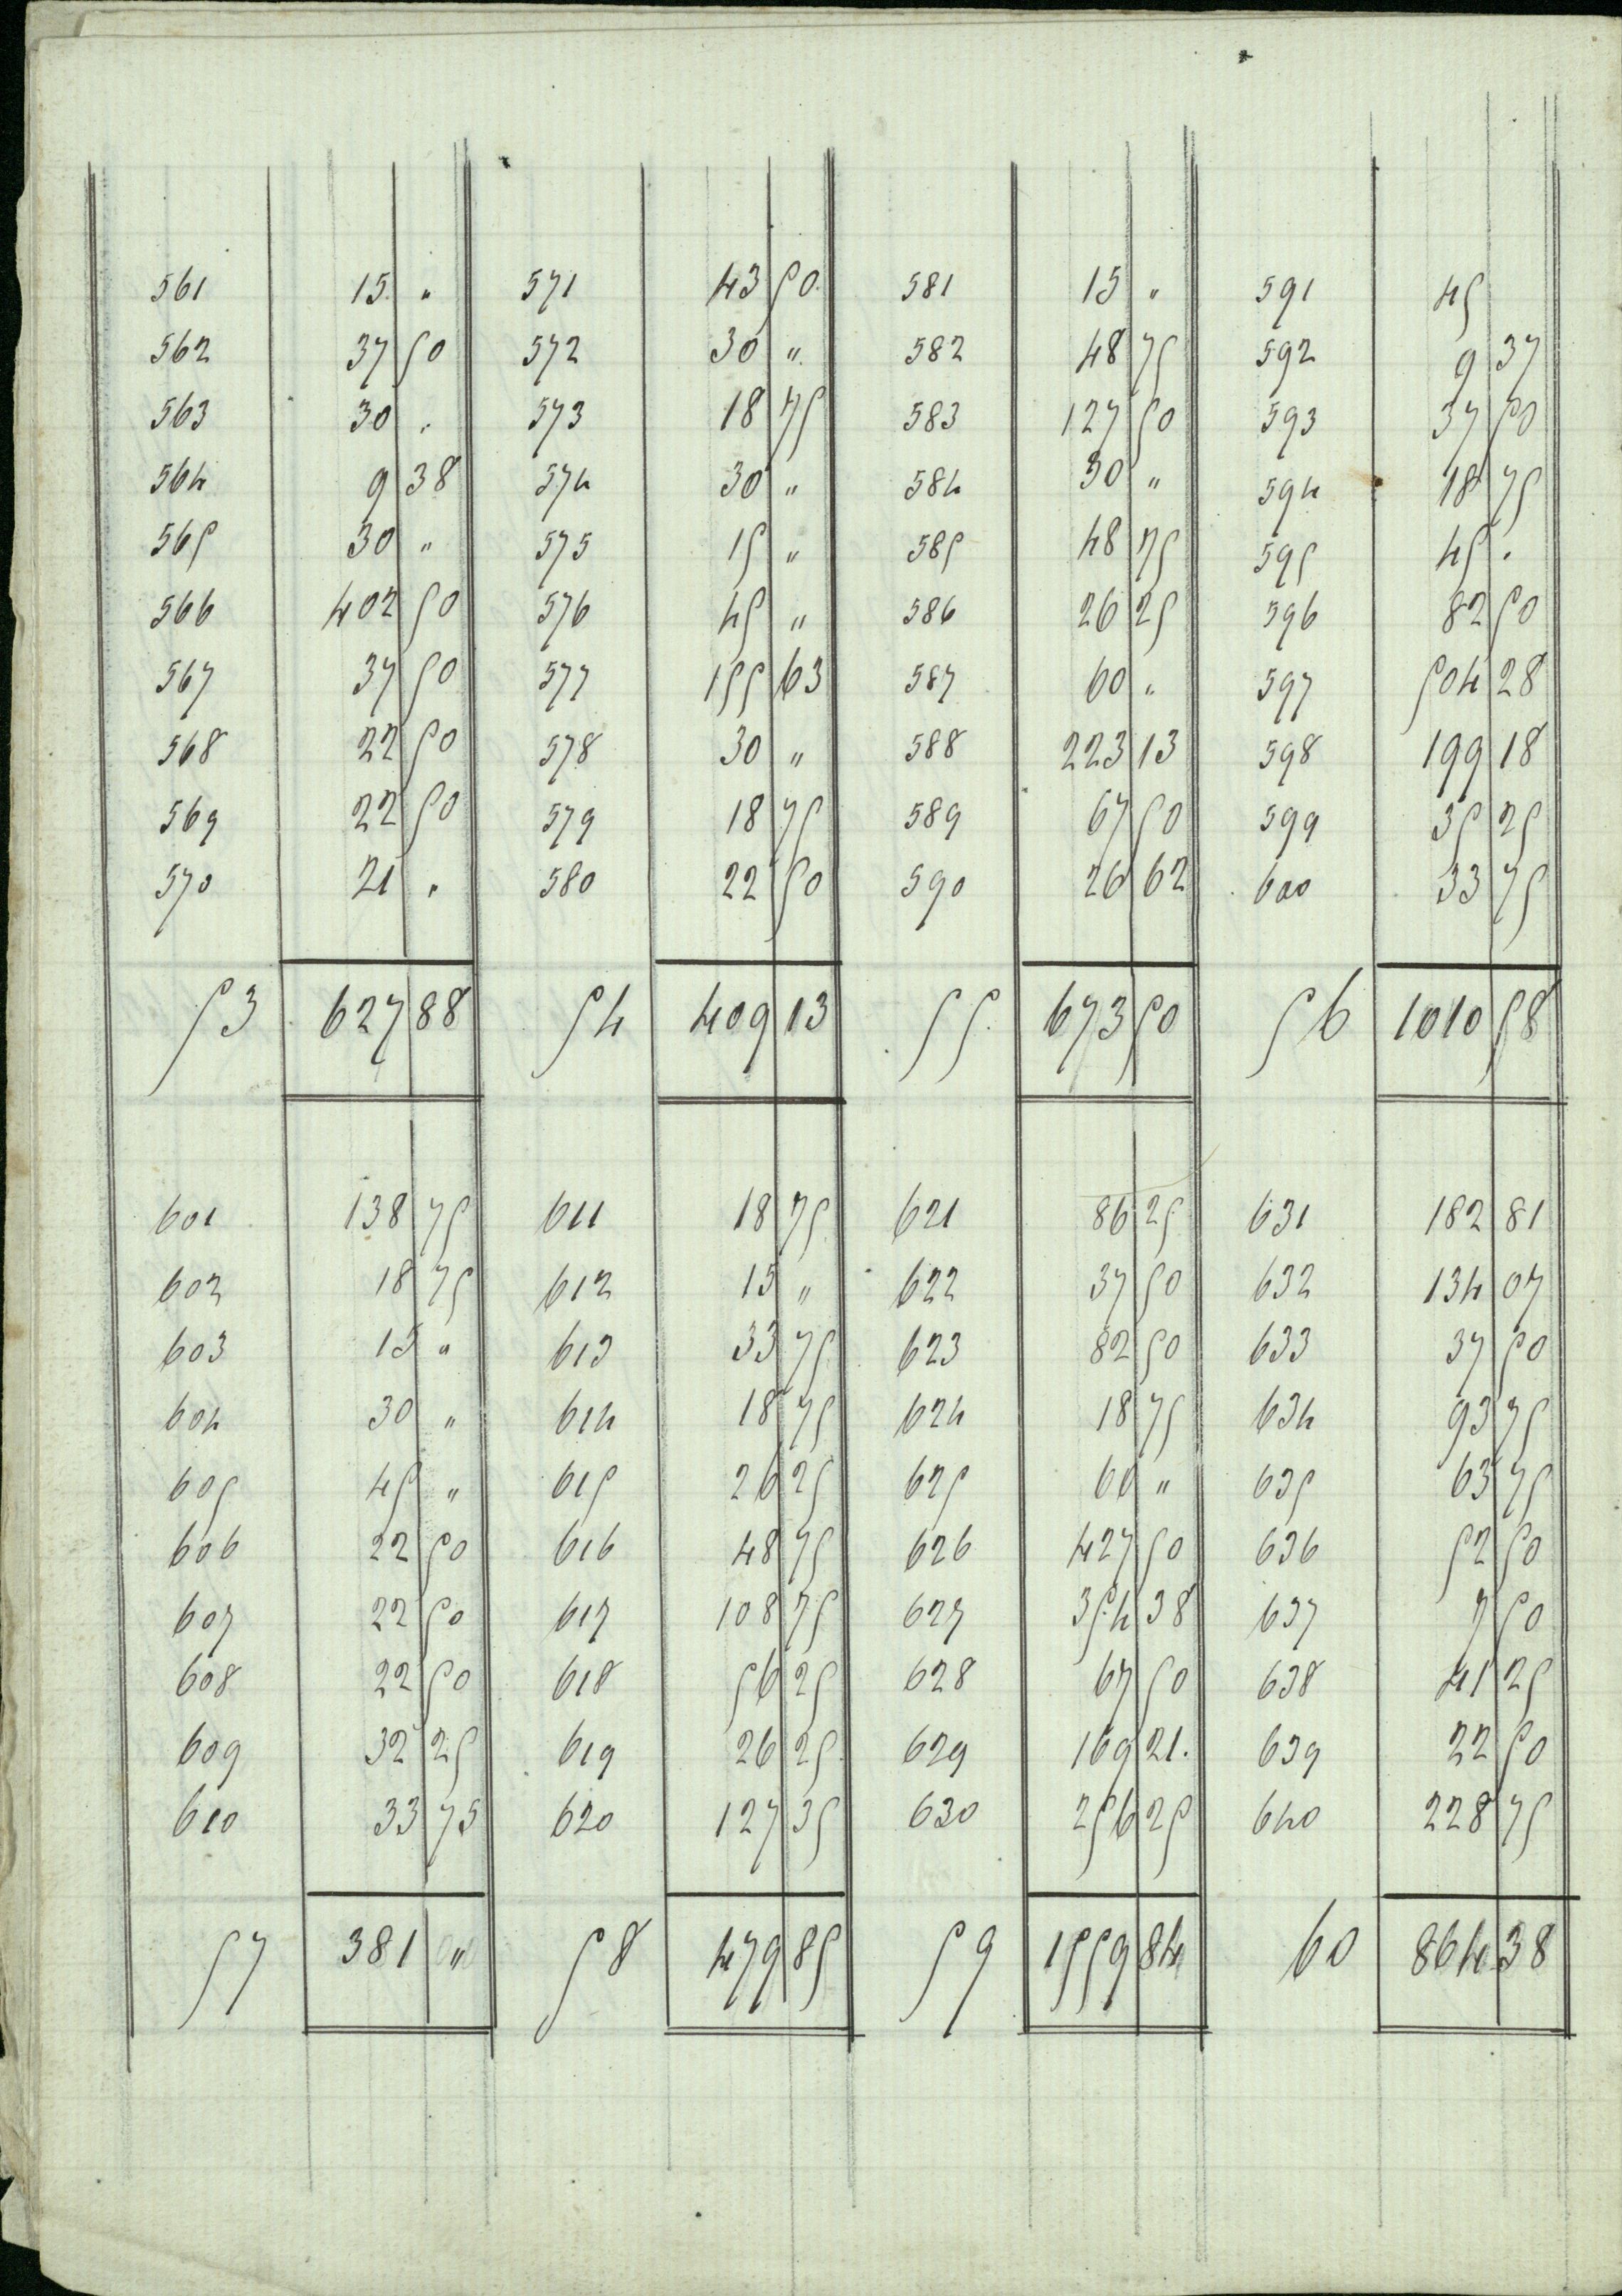 561 15 " 571 43 50. 581 15 " 591 45
562 37 50 572 30 " 582 48 75 592 9 37
563 30 " 573 18 75 583 127 50 593 37 50
564 9 38 574 30 " 584 30 " 594 18 75
565 30 " 575 15 " 585 48 75 595 45 "
566 402 50 576 45 " 586 26 25 596 82 50
567 37 50 577 155 63 587 60 " 597 504 28
568 22 50 578 30 " 588 223 13 598 199 18
569 22 50 579 18 75 589 67 50 599 35 25
570 21 " 580 22 50 590 26 62 600 33 75
53 627 88 54 409 13 55 673 50 56 1010 58
601 138 75 611 18 75 621 86 25 631 182 81
602 18 75 612 15 " 622 37 50 632 134 07
603 15 " 613 33 75 623 82 50 633 37 50
604 30 " 614 18 75 624 18 75 634 93 75
605 45 " 615 26 25 625 60 " 635 63 75
606 22 50 616 48 75 626 427 50 636 52 50
607 22 50 617 108 75 627 354 38 637 7 50
608 22 50 618 56 25 628 67 50 638 41 25
609 32 25 619 26 25 629 169 21. 639 22 50
610 33 75 620 127 35 630 256 25 640 228 75
57 381 " 58 479 85 59 1559 84 60 864 38